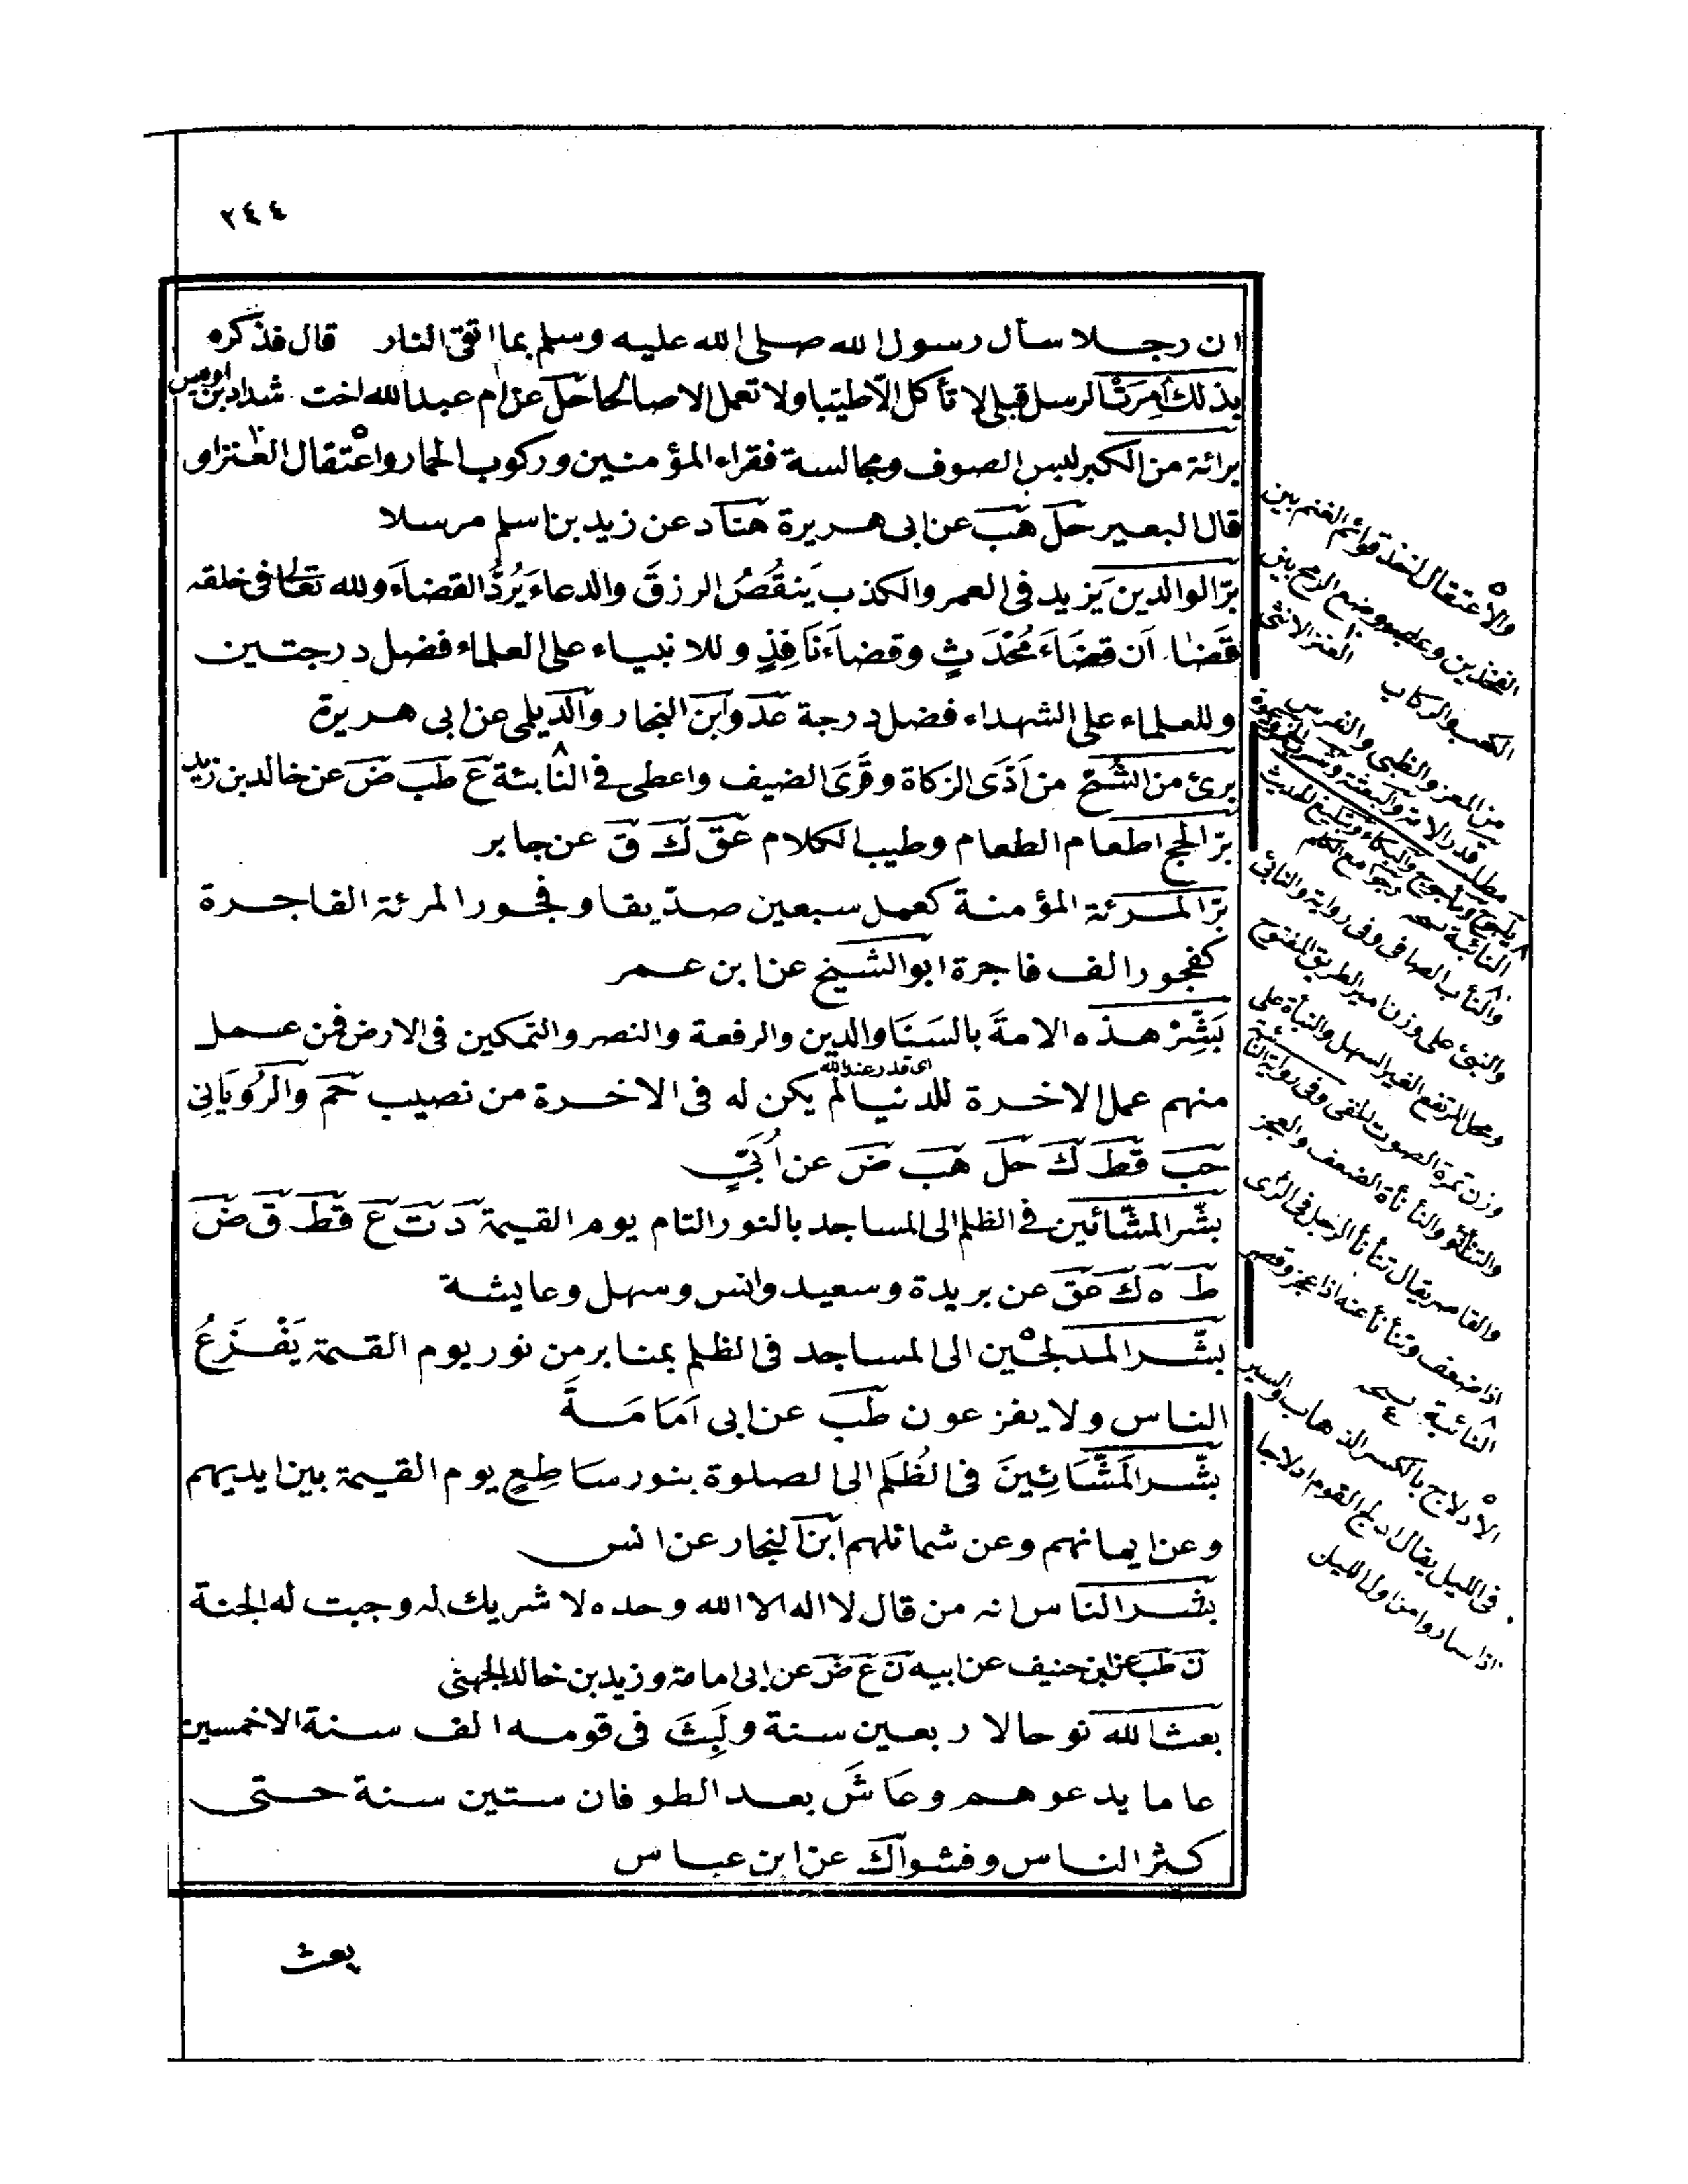 ٢٤٤
ان رجلا سأل رسول الله صلى الله عليه وسلم بما اتقى النار قال فذكره
بذلك أمرت الرسل قبلى لا تأكل الّا طيّبا ولا تعمل الا صالحا حل عن ام عبد الله اخت شداد بن اوس
برائة من الكبر لبس الصوف ومجالسة فقراء المؤمنين وركوب الحمار واعتقال العنز او
قال البعير حل هب عن ابى هريرة هناد عن زيد بن اسلم مرسلا
برّ الوالدين يَزيد فى العمر والكذب يَنقُصُ الرزقَ والدعاءَ يَرُدُّ القضاءَ ولله تعالى فى خلقه
قَضَا ان قضَاءَ مُحْدَثٍ وقضاءَ نَافِذٍ وللانبياء على العلماء فضل درجتين
وللعلماء على الشهداء فضل درجة عد وابن النجار والديلمى عن ابى هريرة
برئ من الشُحّ من اَدَّى الزكاة وقَرَى الضيف واعطى فى النائبة ع طب ض عن خالد بن زيد
برّ الحج اطعام الطعام وطيب الكلام عق ك ق عن جابر
برّ المرئة المؤمنة كعمل سبعين صدّيقا وفجور المرئة الفاجرة
كفجور الف فاجرة ابو الشيخ عن ابن عمر
بَشِّرْ هذه الامةَ بالسَنَا والدين والرفعة والنصر والتمكين فى الارض فمن عمل
اى قدر عند الله
منهم عمل الاخرة للدنيا لم يكن له فى الاخرة من نصيب حم والرُويَانى
حب قط ك حل هب ض عن اُبَيٍّ
بشّر المشّائين فى الظلم الى المساجد بالنور التام يوم القيمة د ت ع قط ق ض
ط ه ك عق عن بريدة وسعيد وانس وسهل وعايشة
بشّر المدلجين الى المساجد فى الظلم بمنابر من نور يوم القيمة يَفْزَعُ
الناس ولا يفزعون طب عن ابى اَمَامَةَ
بشّر المَشَّائِينَ فى الظُلَم الى الصلوة بنور سَاطِعٍ يوم القيمة بين ايديهم
وعن ايمانهم وعن شمائلهم ابن النجار عن انس
بشر الناس انه من قال لا اله الا الله وحده لا شريك له وجبت له الجنة
ن طب عن ابن حنيف عن ابيه ن ع ض عن ابى امامة وزيد بن خالد الجهنى
بعث الله نوحا لاربعين سنة ولَبِثَ فى قومه الف سنة الا خمسين
عاما يدعوهم وعَاشَ بعد الطوفان ستين سنة حتى
كثر الناس وفشوا ك عن ابن عباس
والاعتقال اخذ قوائم الغنم بين
الفخذين وعليه وضع الرمح بين
العنز الانثى
الكعب والركاب
من المعز والظبى والفرس
النائبة نسخه
والنأب الصافى وفى رواية والنائى
والنبئ على وزن امير الطريق المفتوح
ومحل المرتفع الغير السهل والنبأة على
وزن تمرة الصوت الخفى وفى رواية
والتنأنؤ والنأنأة الضعف والعجز
والقاصر يقال تنأنأ الرجل فى الرأى
اذا ضعف وتنأنأ عنه اذا عجز وقصر
النائبة نسخه
الادلاج بالكسر الذهاب والسير
فى الليل يقال ادلج القوم ادلاجا
اذا ساروا من اول الليل
بعث